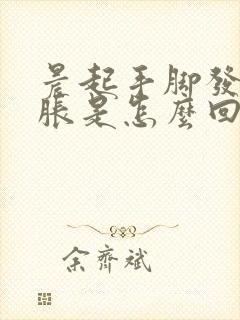 晨起手脚發
脹是怎麼回
余齊斌